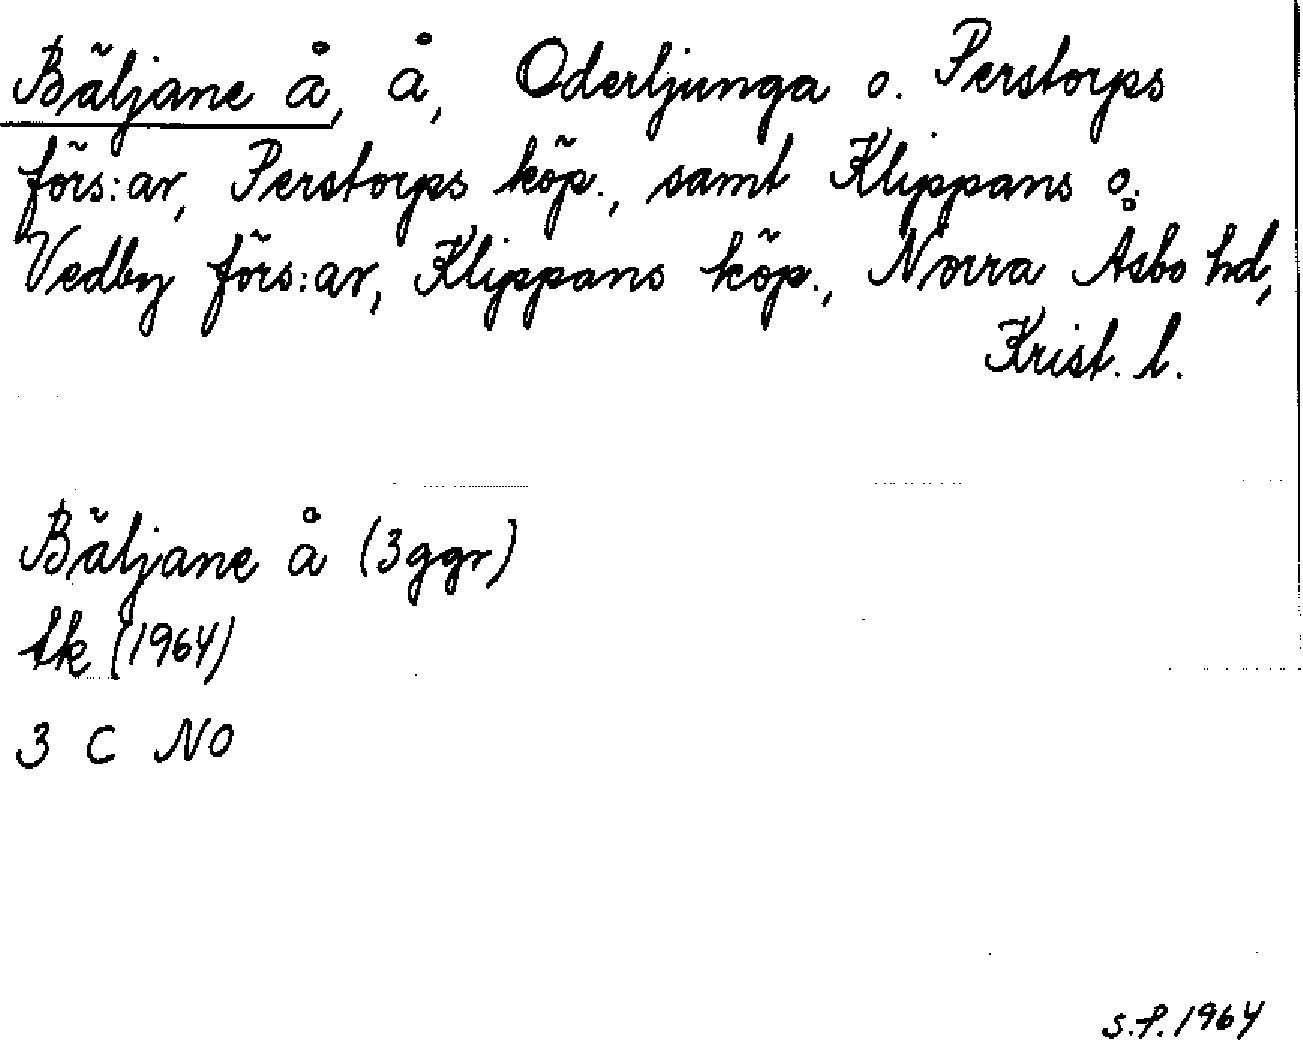 Bäljane å, å, Oderljunga o. Perstorps
förs:ar, Perstorps köp., samt Klippans o.
Vedby förs:ar, Klippans köp., Norra Åsbo hd,
Krist. l.
Bäljane å (3ggr)
tk (1964)
3 C NO
S.P. 1964